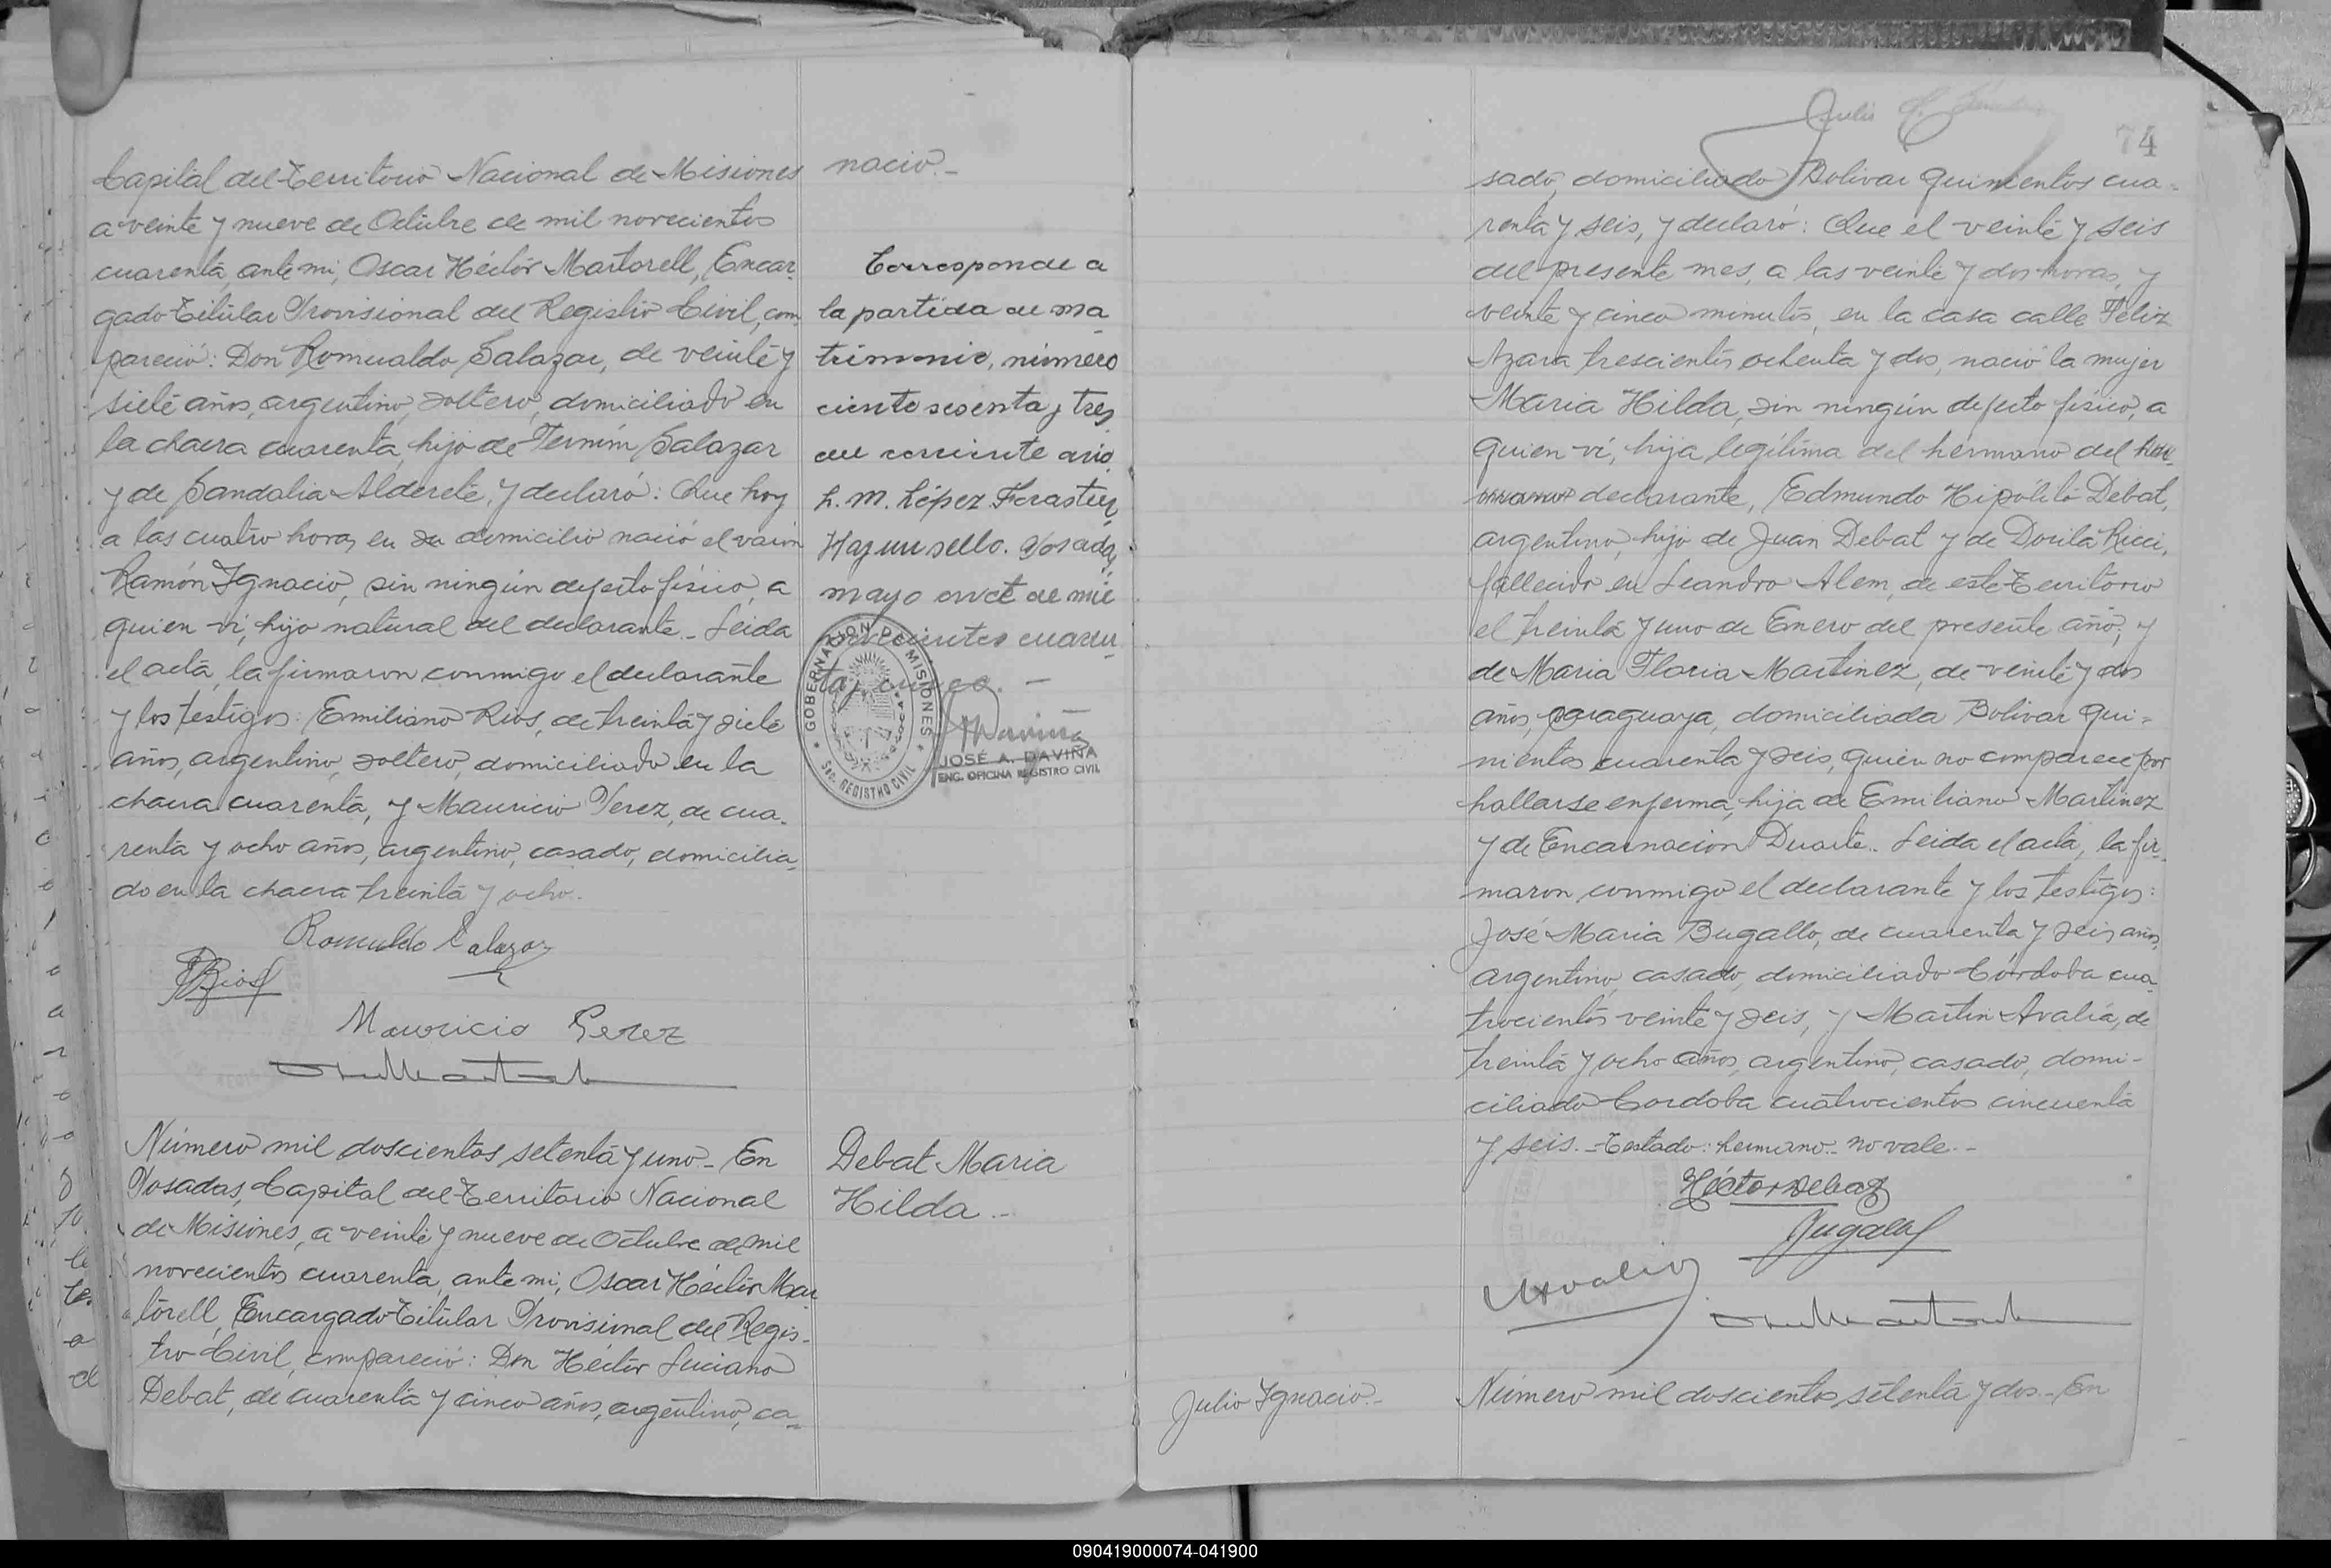 Capital del Territorio Nacional de Misiones
a veinte y nueve de Octubre de mil novecientos
cuarenta, ante mi, Oscar Héctor Martorell, Encar-
gado Titular Provisional del Registro Civil, com-
pareció: Don Romualdo Salazar, de veinte y
siete años, argentino, soltero, domiciliado en
la chacra cuarenta, hijo de Fermín Salazar
y de Sandalia Alderete, y declaró: Que hoy
a las cuatro horas, en su domicilio nació el varón
Ramón Ignacio, sin ningún defecto físico, a
quien vi, hijo natural del declarante._ Leida
el acta, la firmaron conmigo el declarante
y los testigos: Emiliano Rios, de treinta y siete
años, argentino, soltero, domiciliado en la
chacra cuarenta, y Mauricio Perez, de cua-
renta y ocho años, argentino, casado, domicilia-
do en la chacra treinta y ocho.
Romualdo Salazar
Rios
Mauricio Perez
Número mil doscientos setenta y uno._ En
Posadas, Capital del Territorio Nacional
de Misiones, a veinte y nueve de Octubre de mil
novecientos cuarenta, ante mi, Oscar Héctor Mar
torell, Encargado Titular Provisional del Regis-
tro Civil, compareció: Don Héctor Luciano
Debat, de cuarenta y cinco años, argentino, ca-
nacio._
Corresponde a
la partida de ma-
trimonio, número
ciento sesenta y tres
del corriente año.
L. M. López Forastier
Hay un sello. Posadas,
mayo once de mil
novecientos cuaren-
ta y cinco. _
GOBERNACION DE MISIONES
SEC. REGISTRO CIVIL
JOSÉ A. DAVIÑA
ENC. OFICINA REGISTRO CIVIL
Debat Maria
Hilda._
74
sado, domiciliado Bolivar quinientos cua-
renta y seis, y declaró: Que el veinte y seis
del presente mes, a las veinte y dos horas, y
veinte y cinco minutos, en la casa calle Feliz
Azara trescientos ochenta y dos, nació la mujer
Maria Hilda, sin ningún defecto físico, a
quien vi, hija legítima del hermano del her-
mano declarante, Edmundo Hipólito Debat,
argentino, hijo de Juan Debat y de Dorila Ricci,
fallecido en Leandro Alem, de este Territorio
el treinta y uno de Enero del presente año, y
de Maria Floria Martinez, de veinte y dos
años, paraguaya, domiciliada Bolivar qui-
nientos cuarenta y seis, quien no comparece por
hallarse enferma, hija de Emiliano Martinez
y de Encarnación Duarte._ Leida el acta, la fir-
maron conmigo el declarante y los testigos:
José Maria Bugallo, de cuarenta y seis años,
argentino, casado, domiciliado Córdoba cua-
trocientos veinte y seis, y Martin Avalía, de
treinta y ocho años, argentino, casado, domi-
ciliado Cordoba cuatrocientos cincuenta
y seis._ Testado: hermano._ no vale._
Héctor Debat
Julio Ignacio._
Número mil doscientos setenta y dos._ En
090419000074-041900